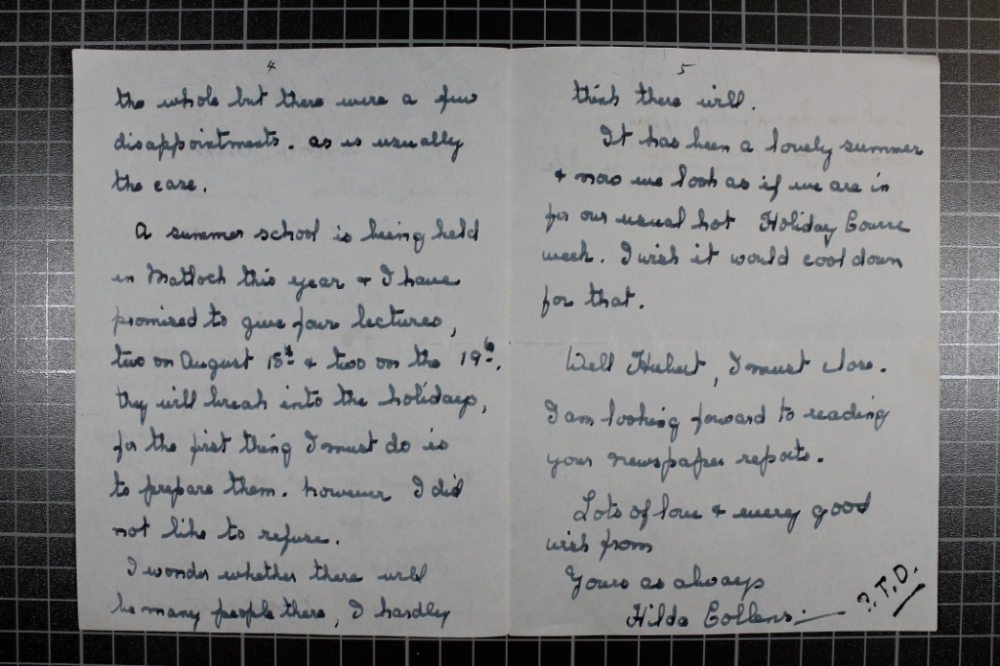 4
the whole but there were a few
disappointments. as is usually
the case.
A summer school is being held
in Matlock this year & I have
promised to give four lectures,
two on August 18th & two on the 19th.
they will break into the holidays,
for the first thing I must do is
to prepare them. however I did
not like to refuse.
I wonder whether there will
be many people there, I hardly
5
think there will.
It has been a lovely summer
& now we look as if we are in
for our usual hot Holiday Course
week. I wish it would cool down
for that.
Well Hubert, I must close.
I am looking forward to reading
your newspaper reports.
Lots of love & every good
wish from
Yours as always
Hilda Collens.
P.T.O.